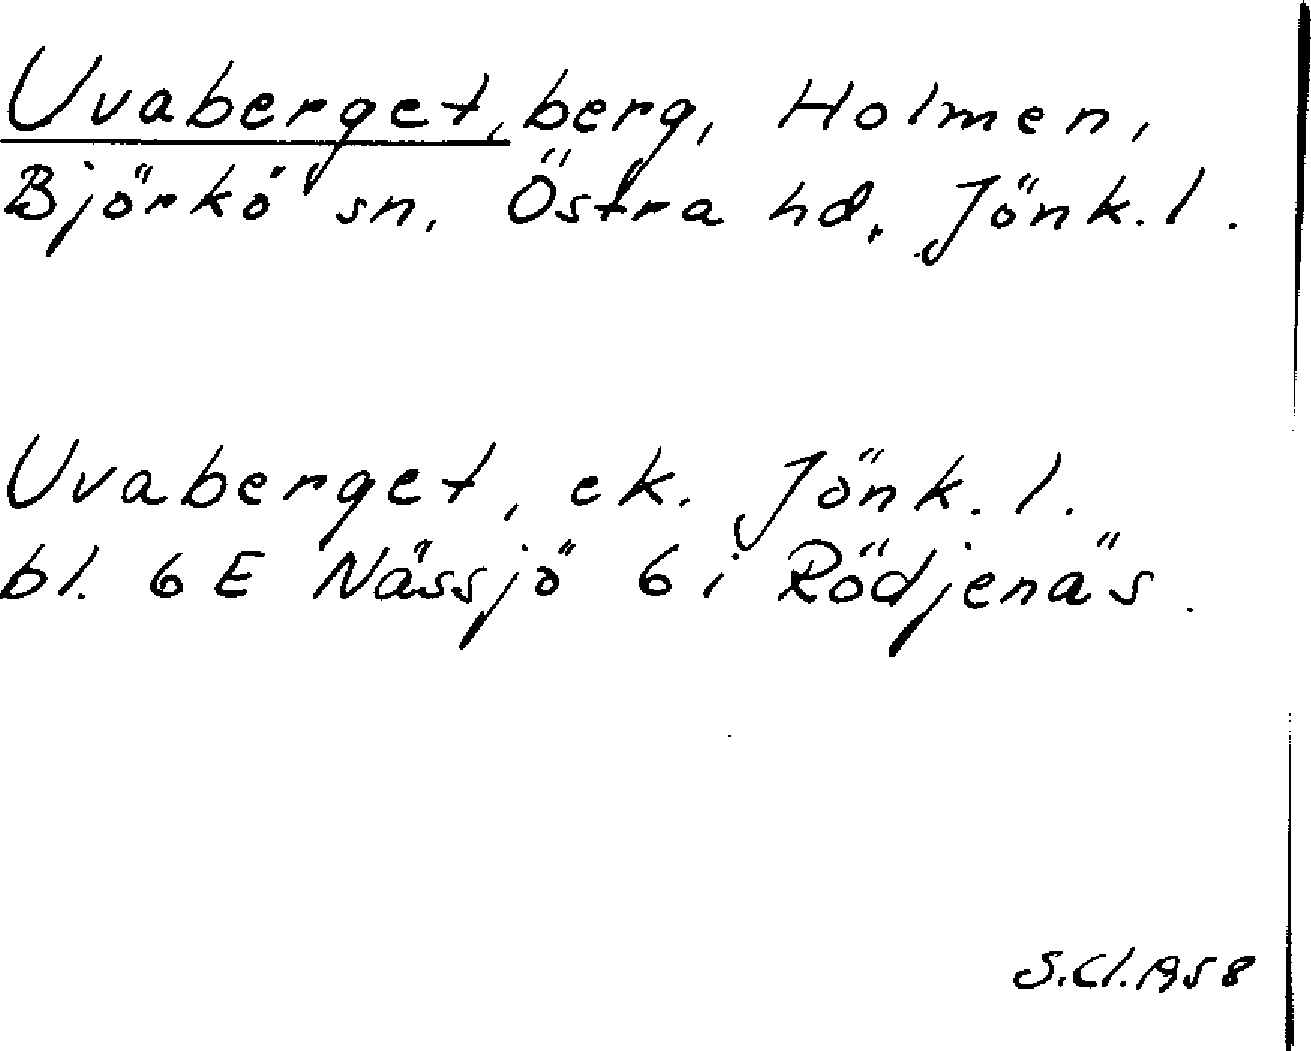 Uvaberget, berg, Holmen,
Björkö sn. Östra hd. Jönk. l.
Uvaberget, ek. Jönk. l.
bl. 6 E Nässjö 6 i Rödjenäs.
S.Cl.1958